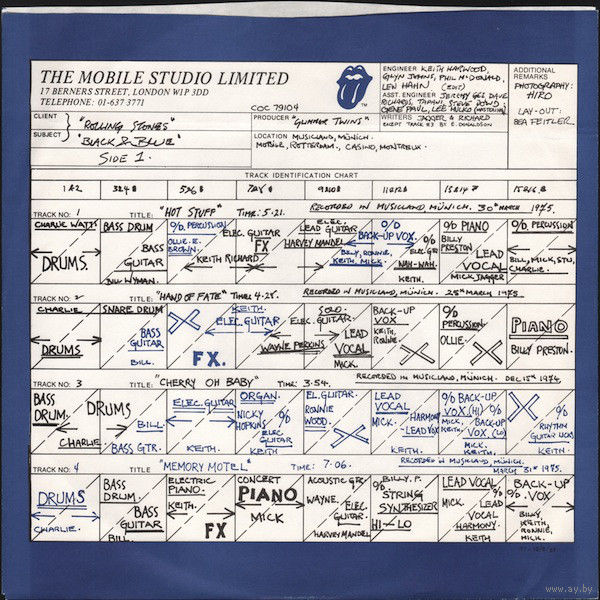 THE MOBILE STUDIO LIMITED
17 BERNERS STREET, LONDON W1P 3DD
TELEPHONE: 01-637 3771
COC 79104
TM
ENGINEER KEITH HARWOOD,
GLYN JOHNS, PHIL McDONALD,
LEW HAHN (EDIT)
ASST. ENGINEER JEREMY GEE, DAVE
RICHARDS, TAPANI, STEVE DOWD
GENE PAUL, LEE HULKO (MASTERING)
WRITERS JAGGER & RICHARD
EXCEPT TRACK #3 BY E. DONALDSON
ADDITIONAL
REMARKS
PHOTOGRAPHY:
HIRO
LAY-OUT:
BEA FEITLER.
CLIENT "ROLLING STONES"
SUBJECT "BLACK & BLUE"
SIDE 1.
PRODUCER "GLIMMER TWINS"
LOCATION MUSICLAND, MÜNICH.
MOBILE, ROTTERDAM, CASINO, MONTREUX.
TRACK IDENTIFICATION CHART
1 & 2 3 & 4 5 & 6 7 & 8 9 & 10 11 & 12 13 & 14 15 & 16
TRACK NO: 1 TITLE: "HOT STUFF" TIME: 5·21. RECORDED IN MUSICLAND, MÜNICH. 30th MARCH 1975.
CHARLIE WATTS
DRUMS.
BASS DRUM
BASS
GUITAR
BILL WYMAN.
% PERCUSSION
OLLIE. E.
BROWN.
ELEC. GUITAR
KEITH RICHARD
FX
ELEC.
LEAD GUITAR
HARVEY MANDEL
O/D
BACK-UP VOX.
BILLY, RONNIE,
KEITH, MICK
%
ELEC. GTR
NAH-NAH.
KEITH.
% PIANO
BILLY
PRESTON
LEAD
VOCAL
MICK JAGGER
%. PERCUSSION
BILL, MICK, STU,
CHARLIE.
TRACK NO: 2 TITLE: "HAND OF FATE" TIME: 4·25. RECORDED IN MUSICLAND, MÜNICH. 25th MARCH 1975
CHARLIE
DRUMS
SNARE DRUM
BASS
GUITAR
BILL.
FX.
KEITH
ELEC. GUITAR
WAYNE PERKINS
SOLO.
ELEC. GUITAR.
LEAD
VOCAL
MICK.
BACK-UP
VOX
KEITH,
RONNIE
%
PERCUSSION.
OLLIE.
PIANO
BILLY PRESTON.
TRACK NO. 3 TITLE: "CHERRY OH BABY" TIME: 3·54. RECORDED IN MUSICLAND, MÜNICH. DEC 15th 1974.
BASS
DRUM.
DRUMS
CHARLIE
BILL.
BASS GTR.
ELEC. GUITAR
KEITH.
ORGAN.
NICKY
HOPKINS
%
ELEC
GUITAR
KEITH
EL. GUITAR.
RONNIE
WOOD.
LEAD
VOCAL
MICK.
HARMONY
-LEAD VOX
% BACK-UP
VOX (HI) %
MICK, BACK-UP
KEITH. VOX (LO)
MICK,
KEITH.
%
RHYTHM
GUITAR LICKS
KEITH.
TRACK NO: 4 TITLE "MEMORY MOTEL" TIME: 7·06. RECORDED IN MUSICLAND, MÜNICH.
MARCH 31st 1975.
DRUMS
CHARLIE.
BASS
DRUM.
BASS
GUITAR
BILL.
ELECTRIC
PIANO.
KEITH.
FX
CONCERT
PIANO
MICK
ACOUSTIC GTR
WAYNE.
ELEC.
GUITAR.
HARVEY MANDEL
BILLY. P.
%
STRING
SYNTHESIZER
HI-LO
LEAD VOCAL
MICK.
%
LEAD
VOCAL
HARMONY.
KEITH
BACK-UP
%. VOX
BILLY,
KEITH,
RONNIE,
MICK.
www.ay.by